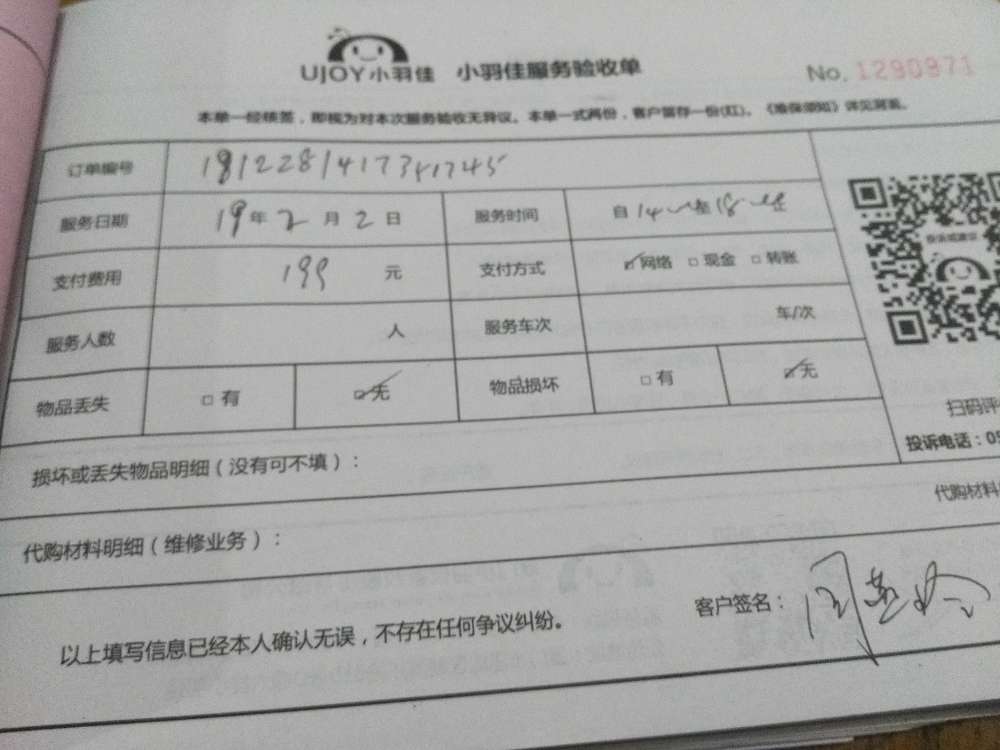 UJOY小羽佳 小羽佳服务验收单 No. 1290971
本单一经核签,即视为对本次服务验收无异议。本单一式两份,客户留存一份(红)。《维保须知》详见背面。
订单编号
服务日期 19年2月2日 服务时间 自14 至18 止
支付费用 199 元 支付方式 ☑网络 □现金 □转账
服务人数 人 服务车次 车/次
物品丢失 □有 ☑无 物品损坏 □有 ☑无
投诉或建议
扫码评
投诉电话:05
损坏或丢失物品明细(没有可不填):
代购材料
代购材料明细(维修业务):
客户签名:
以上填写信息已经本人确认无误,不存在任何争议纠纷。